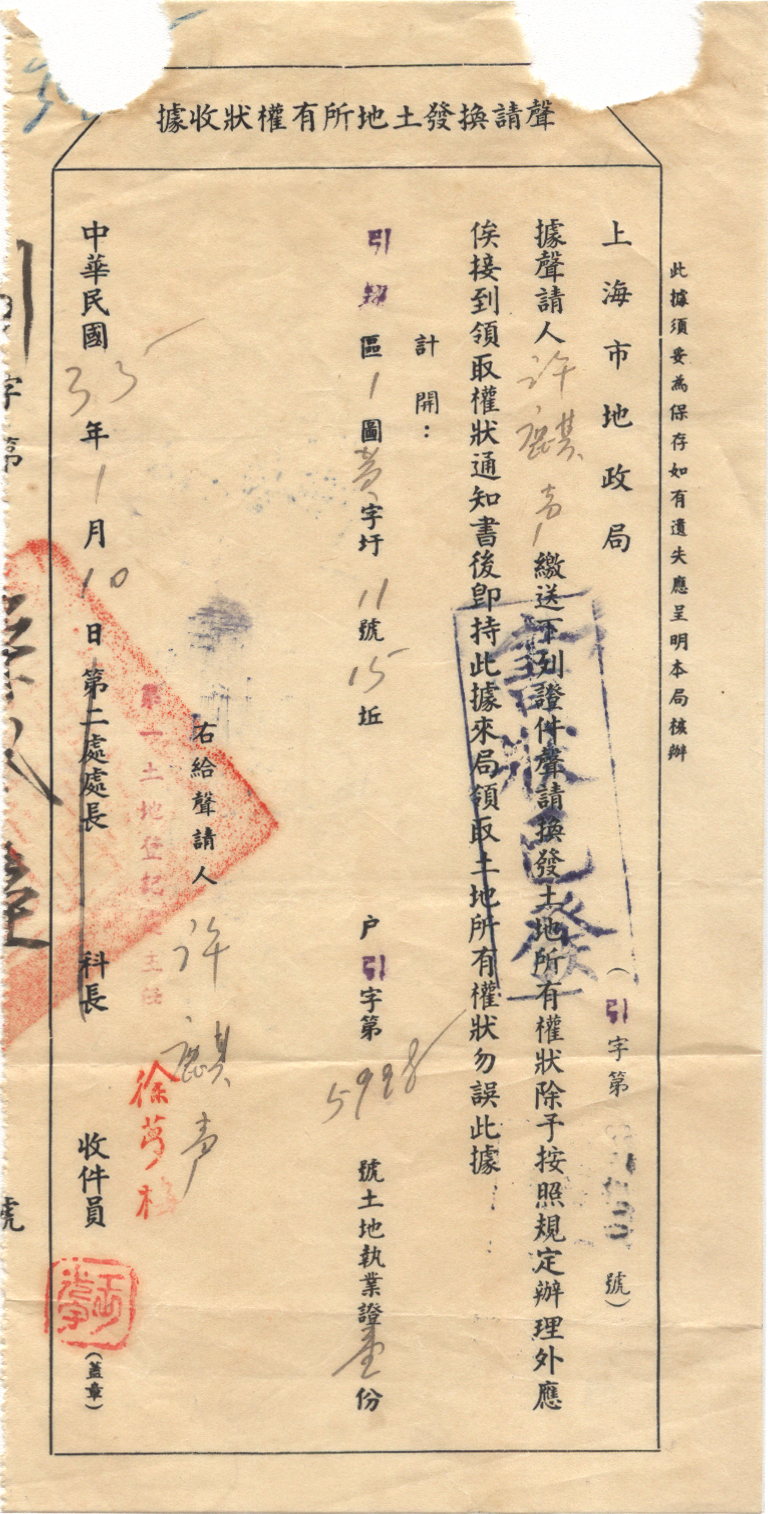 聲請換發土地所有權狀收據
此據須妥為保存如有遺失應呈明本局核辦
上海市地政局
(引字第 號)
據聲請人許麒声繳送下列證件聲請換發土地所有權狀除予按照規定辦理外應
俟接到領取權狀通知書後卽持此據來局領取土地所有權狀勿誤此據
計開:
引翔區1圖黃字圩11號15坵 戶引字第5998號土地執業證壹份
右給聲請人許麒声
第一土地登記處主任徐夢梅
中華民國35年1月10日第二處處長 科長 收件員 (蓋章)
書狀已發
引字第 號